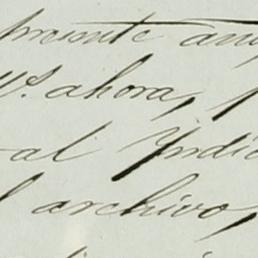 presente
Ws. ahora,
al Yndi
archivo,